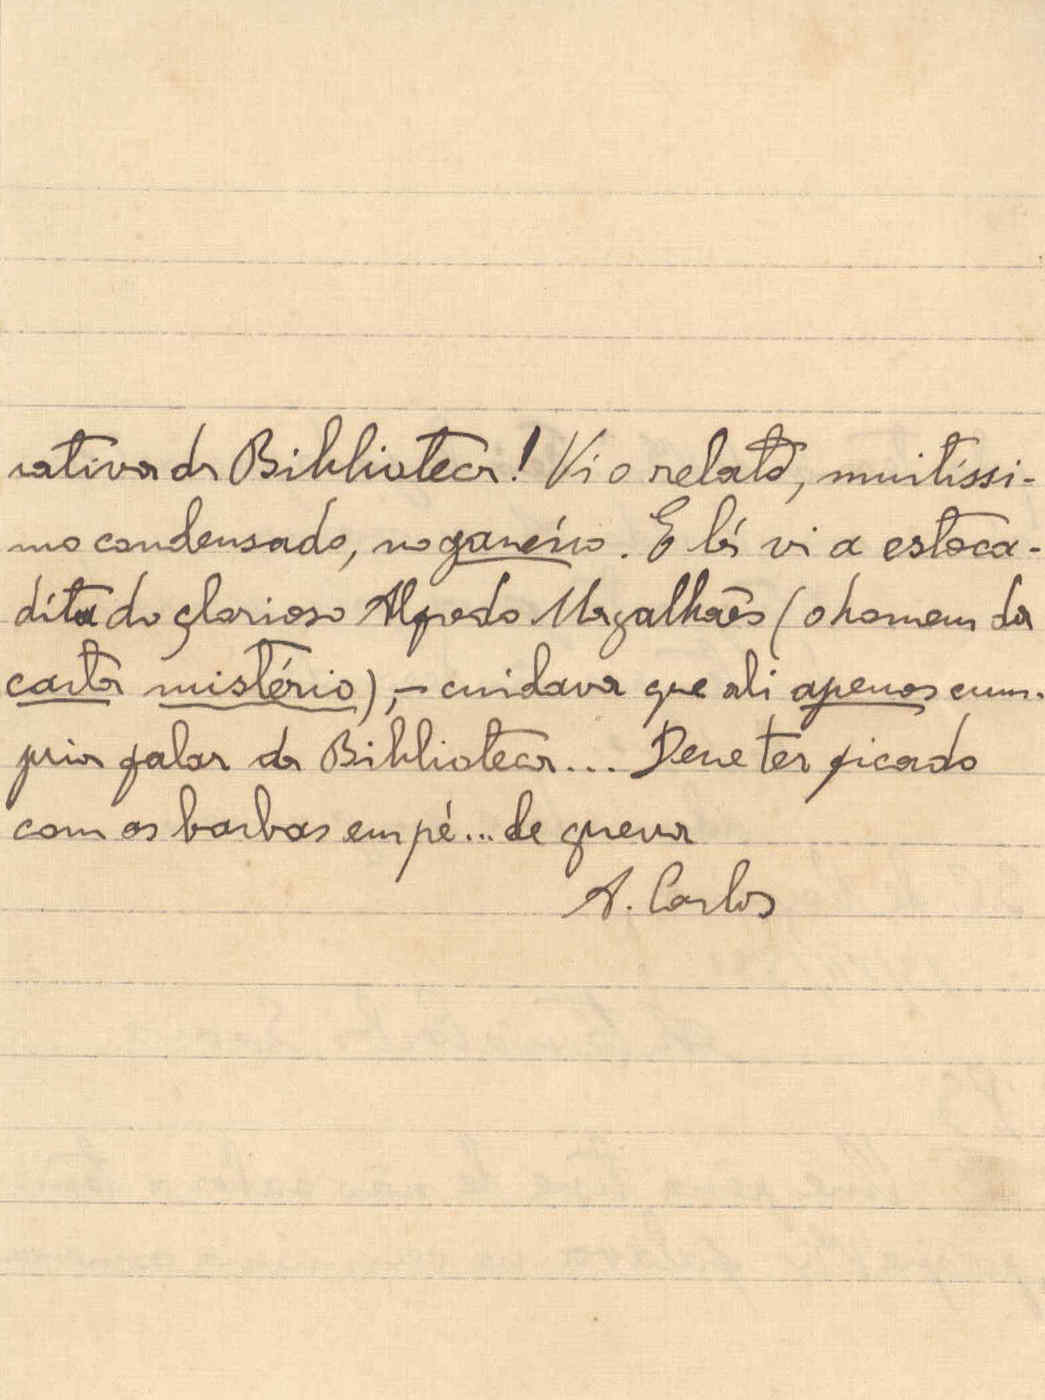 rativa da Biblioteca! Vi o relato, muitíssi-
mo condensado, no Janeiro. E lá vi a estoca-
dita do glorioso Alfredo Magalhães (o homem da
carta mistério), — cuidava que ali apenas cum-
pria falar da Biblioteca... Deve ter ficado
com as barbas em pé... de guerra
A. Carlos